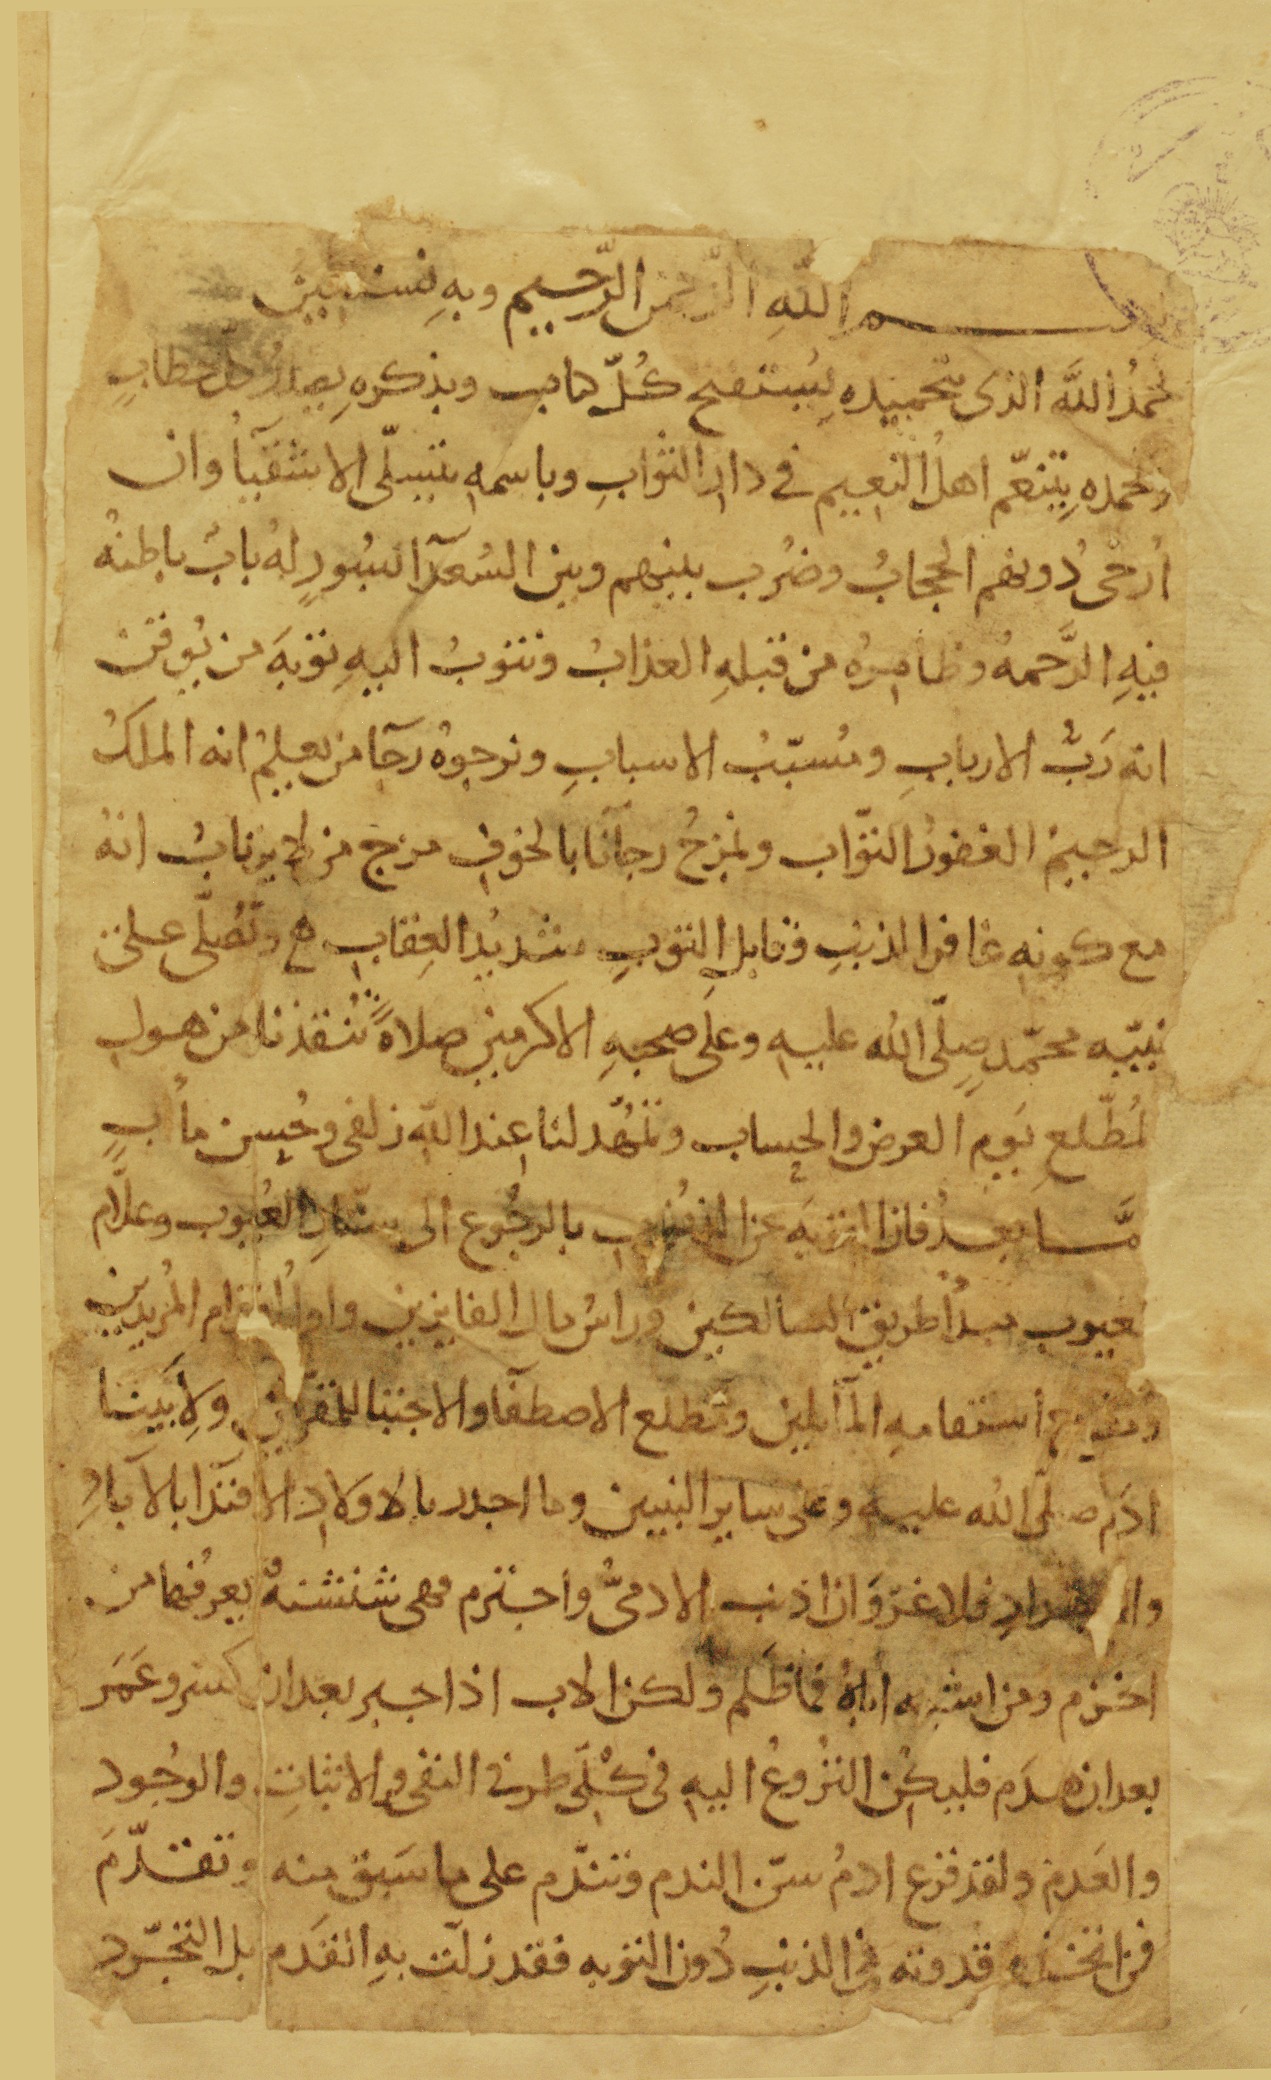 بسم الله الرحمن الرحيم وبه نستعين
نحمدُ اللهَ الذى بتحميده يُستفتح كُلّ كتاب وبذكرهِ يصدرُ كلّ خطابٍ
وبحمدهِ يتنعّم اهلُ النعِيم فى دارِ الثوابِ وباسمهِ يتسلّى الاشقيآُ وان
اُرخىَ دُونهم الحجابُ وضُرب بينهم وبين السُعدآ بسُورٍ لهُ بابٌ باطنهُ
فيهِ الرَّحمهُ وظاهرهُ من قبلهِ العذابُ ونتوبُ اليهِ توبهَ من يُوقن
انه رَبُّ الاربابِ ومُسبّبُ الاسبابِ ونرجوهُ رجآ من يعلمُ انه الملكُ
الرحيمُ الغفورُ التوّاب ونمزجُ رجآنا بالخوفِ مزج من لا يرتابُ انه
مع كونهِ غافر الذنبِ وقابل التوبِ شديدُ العِقابِ ونُصلّى على
نبيّه محمّدٍ صلّى الله عليهِ وعلى صحبهِ الاكرمين صلاةً تُنقذنا من هول
المُطّلعِ يَوم العرضِ والحساب وتمهّد لنا عند اللهِ زلفى وحُسن مأبٍ
امَّا بعدُ فان التوبهَ عن الذنُوبِ بالرجُوع الى ستّارِ العُيوب وعلّام
الغيوب مبدأُ طريق السالكين وراسُ مال الفايزين واول اقدام المُريدين
ومفتاح استقامهِ المآيلين ومطلع الاصطفآ والاجتبا للمقرّبين ولِاَبينا
ادَم صلّى اللهُ عليهِ وعلى ساير النبيين وما اجدر بالاولاد الاقتدآ بالآبآِ
والاجدادِ فلا غروَ ان اذنب الادمىُّ واجترم فهى شنشنهٌ يعرفُها من
اخزم ومن اشبه اباهُ فما ظَلم ولكن الاب اذا جبر بعد ان كسر وعَمَر
بعد ان هدَم فليكُن النزُوعُ اليهِ فى كُلّى طرفى النفى والاثباتِ والوجُود
والعَدم ولقد قرع ادمُ سنّ الندم وتندّم على ما سَبق منه وتقدّمَ
فمن اتخذه قدوته فى الذنبِ دُون التوبه فقد زلّت بهِ القدَم بل التجرّد